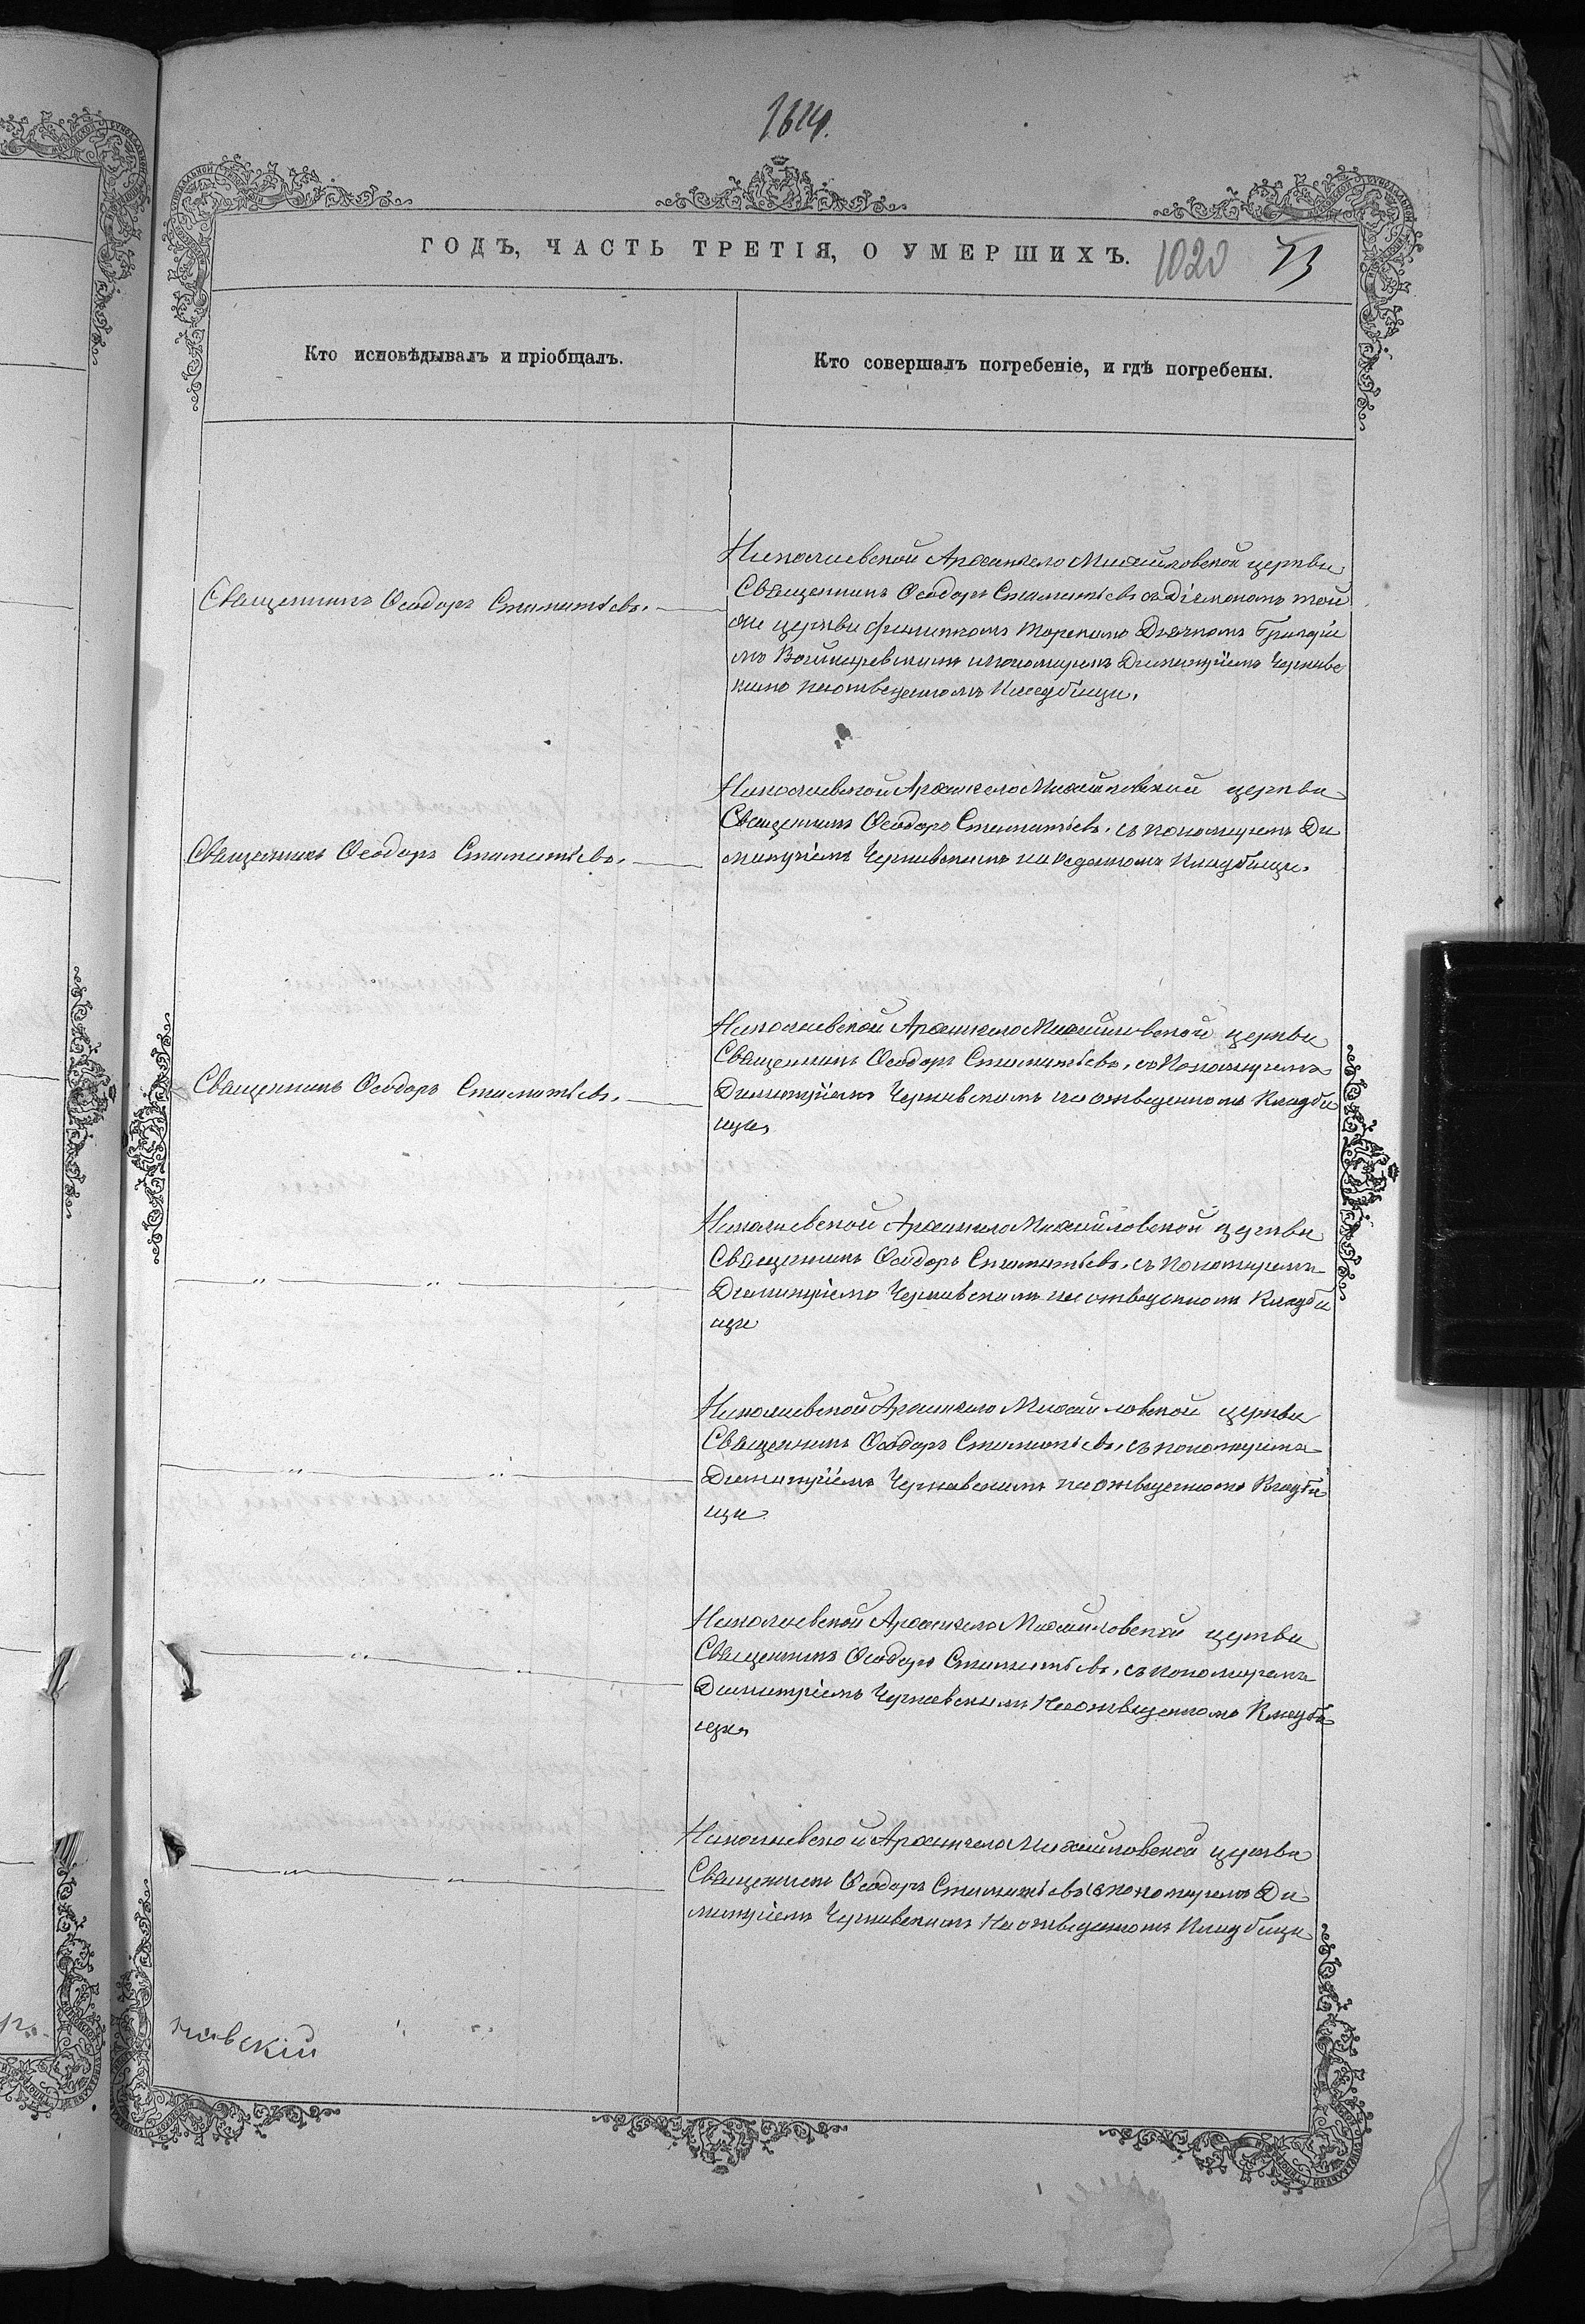 1614.
ГОДЪ, ЧАСТЬ ТРЕТІЯ, О УМЕРШИХЪ. 1020 73
Кто исповѣдывалъ и пріобщалъ.
Кто совершалъ погребеніе, и гдѣ погребены.
Священникъ Ѳеодоръ Стаматьевъ.
Николаевской Архангело Михайловской церкви
Священникъ Ѳеодоръ Стаматьевъ съ Діакономъ той
же церкви Дьячкомъ Григорі
емъ и пономаремъ Димитріемъ Чернявс
кимъ на отведенномъ Кладбищи.
Священникъ Ѳеодоръ Стаматьевъ.
Николаевской Архангело Михайловской церкви
Священникъ Ѳеодоръ Стаматьевъ. съ пономаремъ Ди
митріемъ Чернявскимъ на отведенномъ Кладбищи.
Священникъ Ѳеодоръ Стаматьевъ.
Николаевской Архангело Михайловской церкви
Священникъ Ѳеодоръ Стаматьевъ. съ Пономаремъ
Димитріемъ Чернявскимъ на отведенномъ Кладби
щи,
Николаевской Архангело Михайловской церкви
Священникъ Ѳеодоръ Стаматьевъ. съ пономаремъ
— „ — „ —
Димитріемъ Чернявскимъ на отведенномъ Кладби
щи
Николаевской Архангело Михайловской церкви
Священникъ Ѳеодоръ Стаматьевъ. съ пономаремъ
— „ — „ —
Димитріемъ Чернявскимъ на отведенномъ Кладби
щи
Николаевской Архангело Михайловской церкви
Священникъ Ѳеодоръ Стаматьевъ. съ пономаремъ
— „ — „ —
Димитріемъ Чернявскимъ На отведенномъ Кладби
щи,
Николаевской Архангело Михайловской церкви
— „ — „ —
Священникъ Ѳеодоръ Стаматьевъ съ пономаремъ Ди
митріемъ Чернявскимъ На отведенномъ Кладбищи